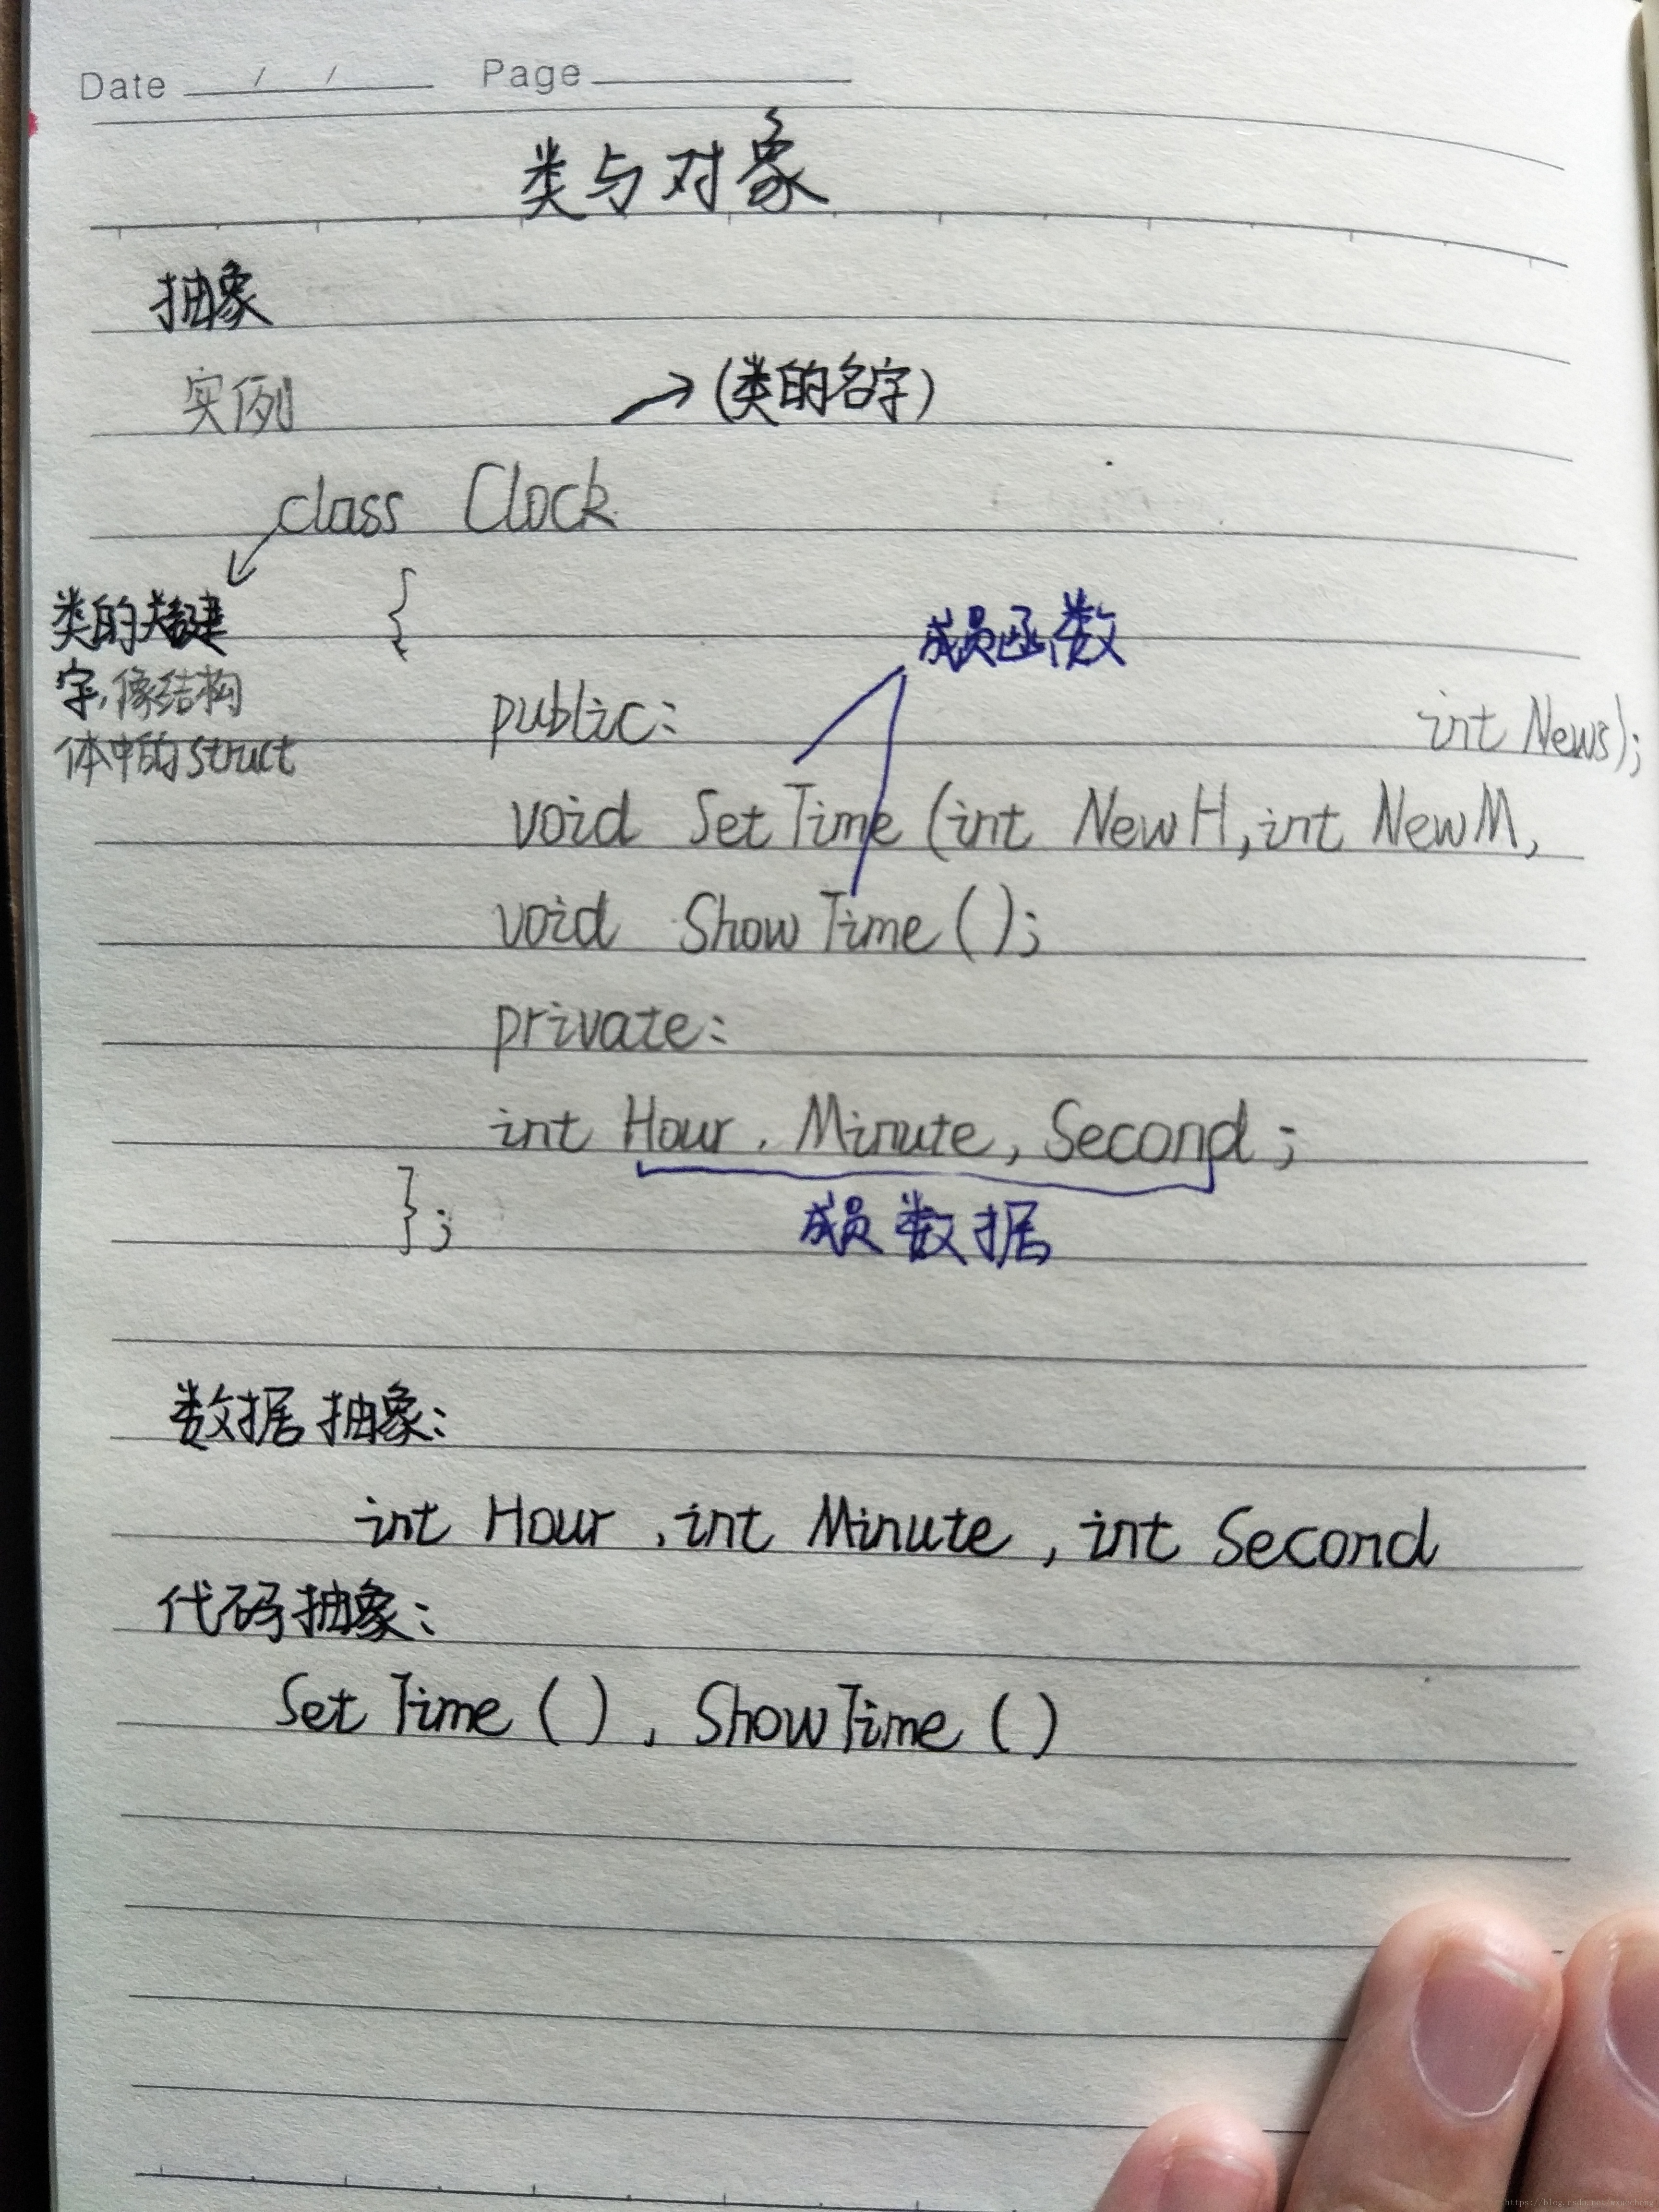 Date / / Page
类与对象
抽象
实例
(类的名字)
class Clock
类的关键
字,像结构
体中的struct
{
成员函数
public:
int NewS);
void SetTime (int NewH, int NewM,
void ShowTime ( );
private:
int Hour, Minute, Second;
成员数据
};
数据抽象:
int Hour, int Minute, int Second
代码抽象:
SetTime ( ), ShowTime ( )